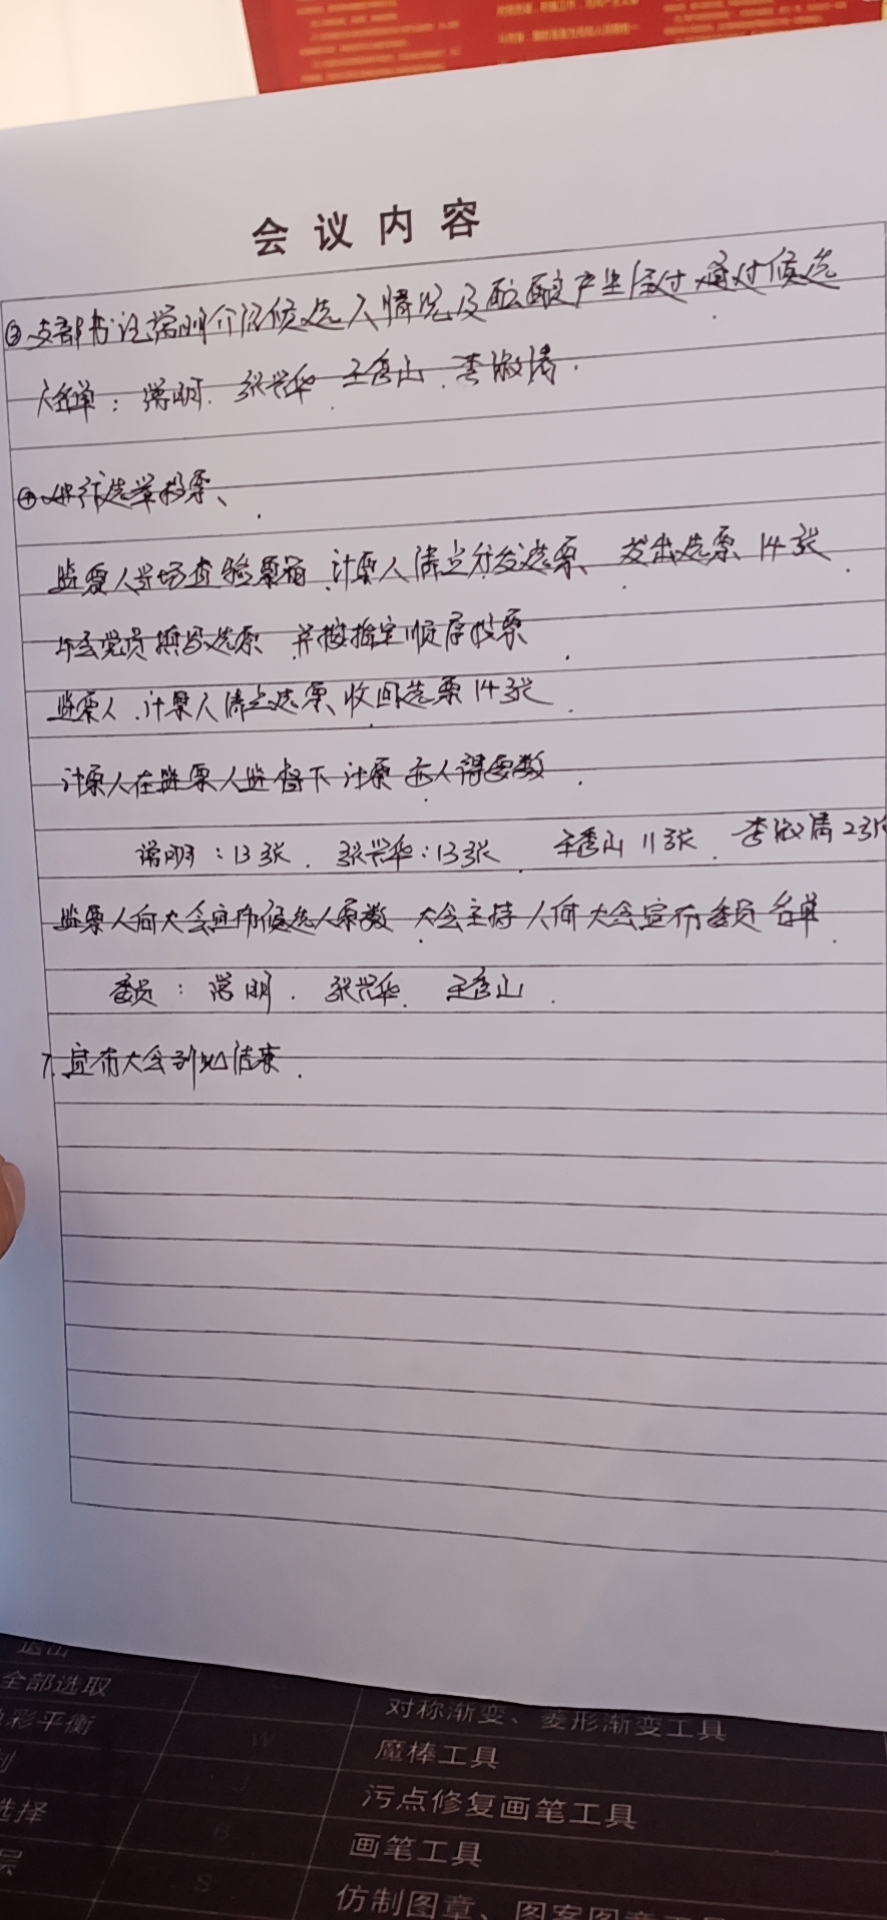 会议内容
③支部书记常明介绍候选人情况及酝酿产生经过.通过候选
人名单：常明. 张兴华. 王秀山. 李淑清.
④进行选举投票、
监票人当场查验票箱.计票人清点分发选票、发出选票14张.
与会党员填写选票 并按指定顺序投票.
监票人.计票人清点选票、收回选票14张.
计票人在监票人监督下计票 各人得票数.
常明：13张. 张兴华：13张. 王秀山11张. 李淑清2张
监票人向大会宣布候选人票数.大会主持人向大会宣布委员名单.
委员：常明. 张兴华. 王秀山.
7.宣布大会到此结束.
全部选取
彩平衡
选择
层
对称渐变、菱形渐变工具
W
魔棒工具
J
污点修复画笔工具
B
画笔工具
S
仿制图章、图案图章工具